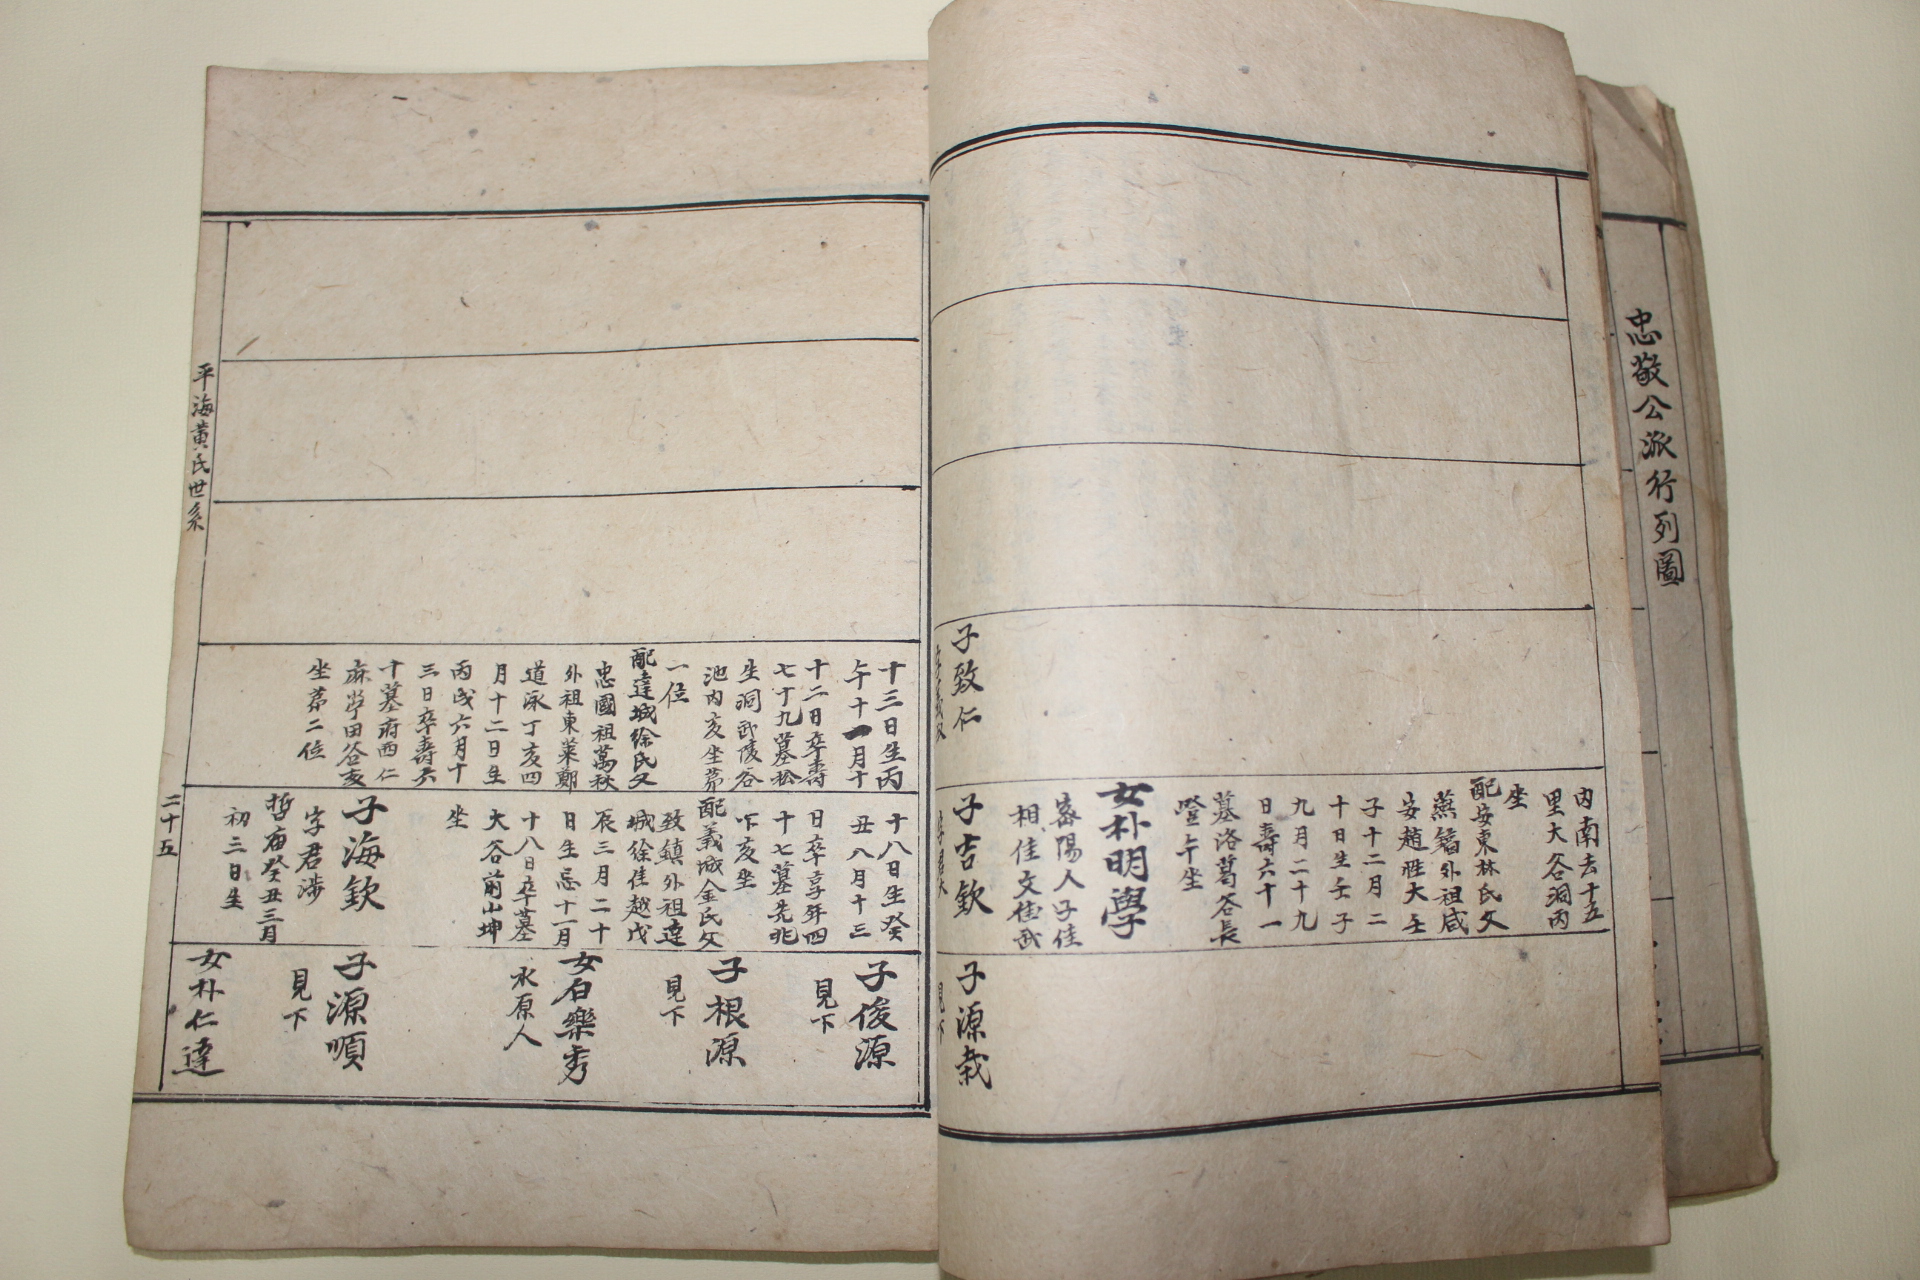 忠敬公派行列圖
子致仁
內南去十五
里大谷洞丙
坐
配安東林氏父
燕鐕外祖咸
安趙胜大壬
子十二月二
十日生壬子
九月二十九
日壽六十一
墓洛葛谷長
嶝午坐
女朴明學
密陽人子佳
相佳文佳武
子吉欽
子源栽
十三日生丙
午十一月十
十二日卒壽
七十九墓松
生洞武陵谷
池內亥坐第
一位
配達城徐氏父
忠國祖萬秋
外祖東萊鄭
道泳丁亥四
月十二日生
丙戌六月十
三日卒壽六
十墓府西仁
麻學田谷亥
坐第二位
十八日生癸
丑八月十三
日卒享年四
十七墓先兆
下亥坐
配義城金氏父
致鎮外祖達
城徐佳越戊
辰三月二十
日生忌十一月
十八日卒墓
大谷前山坤
坐
子海欽
字君涉
哲庙癸丑三月
初三日生
子俊源
見下
子根源
見下
女石樂秀
水原人
子源順
見下
女朴仁達
平海黃氏世系
二十五